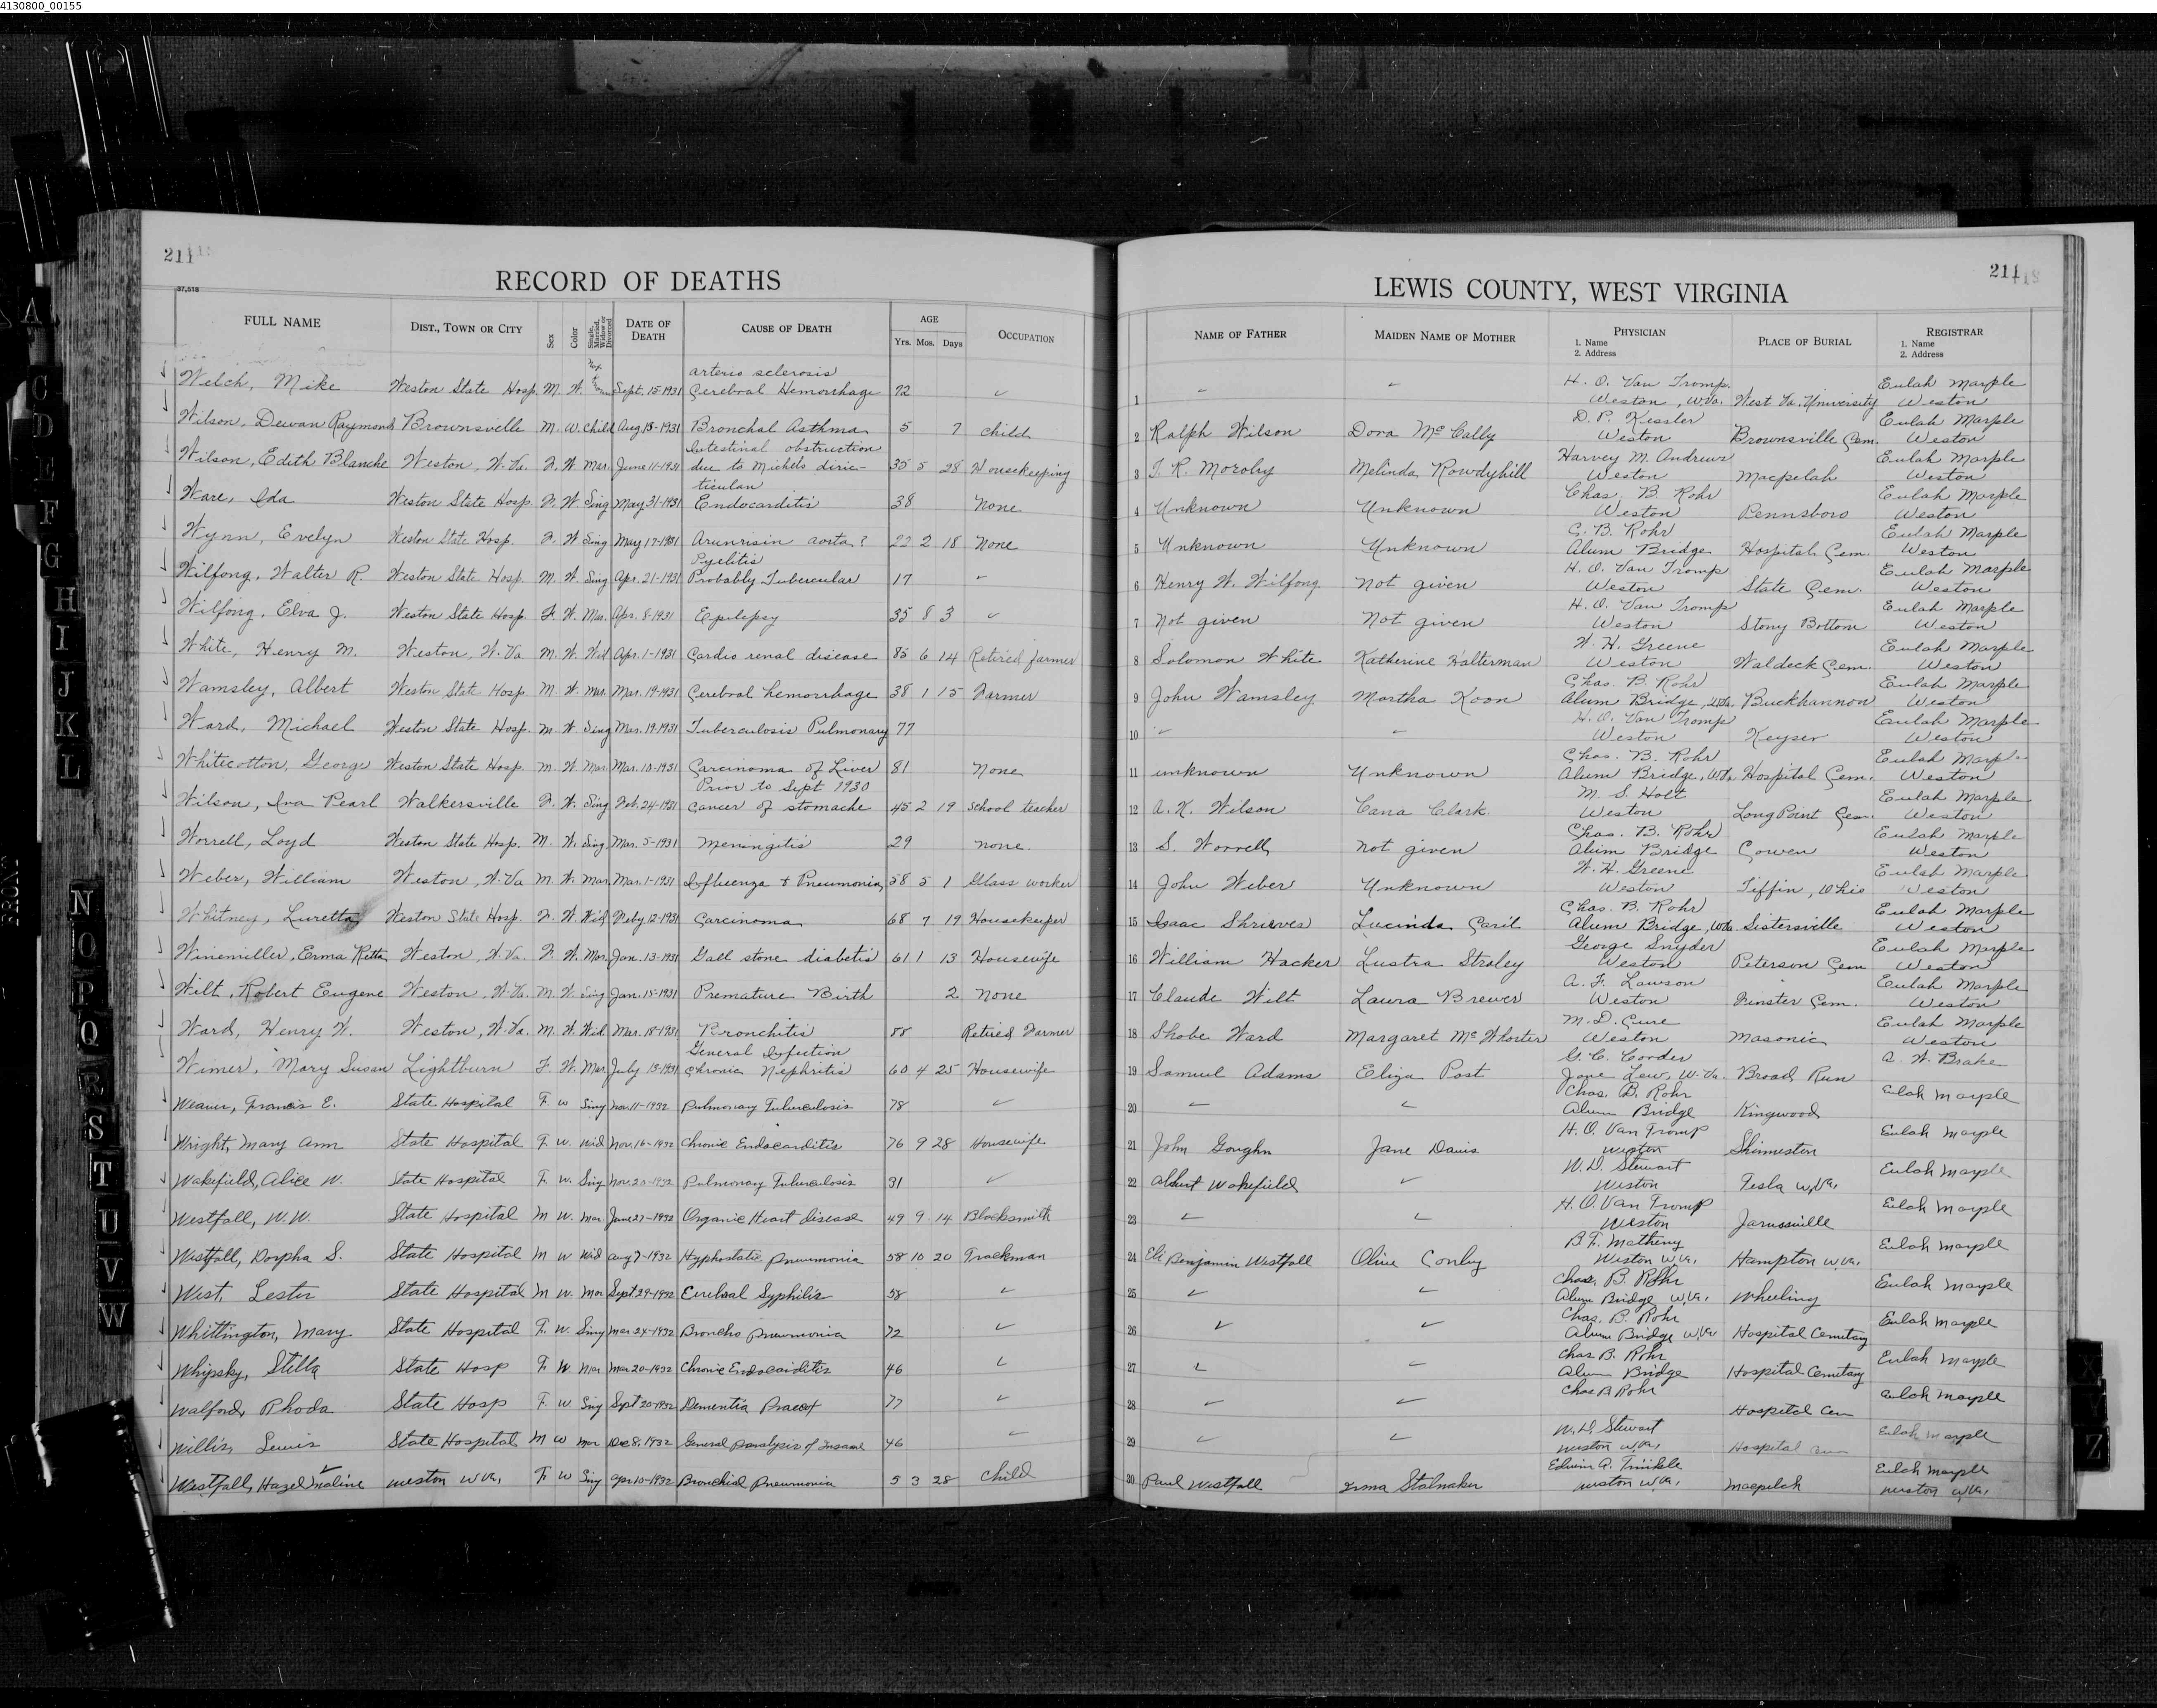 4130800_00155
211
RECORD OF DEATHS
37,518
FULL NAME DIST., TOWN OR CITY Sex Color Single, Married, Widow or Divorced DATE OF DEATH CAUSE OF DEATH AGE Yrs. Mos. Days OCCUPATION
arterio sclerosis
Welch, Mike Weston State Hosp. M. W. Sept. 15-1931 Cerebral Hemorrhage 72 ✓
Wilson, Dewan Raymond Brownsville M W. Child Aug 18-1931 Bronchal Asthma 5 7 child
Intestinal obstruction
Wilson, Edith Blanche Weston, W. Va. F. W. Mar. June 11-1931 due to Michels diric- 35 5 28 Housekeeping
ticular
Ware, Ida Weston State Hosp. F. W. Sing May 31-1931 Endocarditis 38 None
Wynn, Evelyn Weston State Hosp. F. W Sing May 17-1931 Arunrisin aorta? 22 2 18 None
Pyelitis
Wilfong, Walter R. Weston State Hosp. M. W. Sing Apr. 21-1931 Probably Tubercular 17 ✓
Wilfong, Elva J. Weston State Hosp. F. W. Mar. Apr. 8-1931 Epilepsy 35 8 3 ✓
White, Henry M. Weston, W. Va M. W. Wid Apr. 1-1931 Cardio renal disease 85 6 14 Retired farmer
Wamsley, Albert Weston State Hosp. M W. Mar. Mar. 19-1931 Cerebral hemorrhage 38 1 15 Farmer
Ward, Michael Weston State Hosp. M W. Sing Mar. 19-1931 Tuberculosis Pulmonary 77
Whitecotton, George Weston State Hosp. M. W. Mar. Mar. 10-1931 Carcinoma of Liver 81 None
Prior to Sept 1930
Wilson, Iva Pearl Walkersville F. W. Sing Feb. 24-1931 cancer of stomache 45 2 19 School teacher
Worrell, Loyd Weston State Hosp. M. W. Sing. Mar. 5-1931 Meningitis 29 none.
Weber, William Weston, W. Va M W. Mar. Mar. 1-1931 Influenza & Pneumonia 58 5 1 Glass worker
Whitney, Luretta Weston State Hosp. F. W. Wid Feby 12-1931 Carcinoma 68 7 19 Housekeeper
Winemiller, Erma Retta Weston, W. Va. F. W. Mar. Jan. 13-1931 Gall stone diabetis 61 1 13 Housewife
Wilt, Robert Eugene Weston, W. Va. M. W. Sing Jan. 15-1931 Premature Birth 2 None
Ward, Henry W. Weston, W. Va. M. W. Wid. Mar. 18-1931 Bronchitis 88 Retired Farmer
General Infection
Wimer, Mary Susan Lightburn F. W. Mar. July 13-1931 Chronic Nephritis 60 4 25 Housewife
Weaver, Francis E. State Hospital F. w Sing Nov. 11-1932 Pulmonary Tuberculosis 78 ✓
Wright, Mary Ann State Hospital F w. Wid Nov. 16-1932 Chronic Endocarditis 76 9 28 Housewife
Wakefield, Alice W. State Hospital F. w. Sing Nov. 20-1932 Pulmonary Tuberculosis 31 ✓
Westfall, W. W. State Hospital M W. Mar June 27-1932 Organic Heart disease 49 9 14 Blacksmith
Westfall, Dorpha S. State Hospital M w Wid Aug 7-1932 Hyphostatic pneumonia 58 10 20 Trackman
West, Lester State Hospital M w. Mar Sept 29-1932 Cerebral Syphilis 58 ✓
Whittington, Mary State Hospital F. w. Sing Mar 24-1932 Broncho pneumonia 72 ✓
Whipsky, Stella State Hosp F. w Mar Mar 20-1932 Chronic Endocarditis 46 ✓
Walford, Rhoda State Hosp F. w Sing Sept 20-1932 Dementia Praecox 77 ✓
Willis, Lewis State Hospital M w Mar Dec 8, 1932 General paralysis of Insane 46 ✓
Westfall, Hazel Maline Weston W Va, F. w Sing Apr 10-1932 Bronchial Pneumonia 5 3 28 Child
211
LEWIS COUNTY, WEST VIRGINIA
NAME OF FATHER MAIDEN NAME OF MOTHER PHYSICIAN 1. Name 2. Address PLACE OF BURIAL REGISTRAR 1. Name 2. Address
H. O. Van Tromp. Eulah Marple
1 ✓ ✓ Weston, W.Va. West Va. University Weston
D. P. Kessler Eulah Marple
2 Ralph Wilson Dora McCally Weston Brownsville Cem. Weston
Harvey M. Andrews Eulah Marple
3 T. R. Moroby Melinda Rowdyhill Weston Macpelah Weston
Chas. B. Rohr Eulah Marple
4 Unknown Unknown Weston Pennsboro Weston
C. B. Rohr Eulah Marple
5 Unknown Unknown Alum Bridge Hospital Cem. Weston
H. O. Van Tromp Eulah Marple
6 Henry W. Wilfong Not given Weston State Cem. Weston
H. O. Van Tromp Eulah Marple
7 Not given Not given Weston Stony Bottom Weston
W. H. Greene Eulah Marple
8 Solomon White Katherine Halterman Weston Waldeck Cem. Weston
Chas. B. Rohr Eulah Marple
9 John Wamsley Martha Koon Alum Bridge, W.Va. Buckhannon Weston
H. O. Van Tromp Eulah Marple
10 ✓ ✓ Weston Keyser Weston
Chas. B. Rohr Eulah Marple
11 unknown Unknown Alum Bridge, W.Va. Hospital Cem. Weston
M. S. Holt Eulah Marple
12 A. K. Wilson Cana Clark. Weston Long Point Cem. Weston
Chas. B. Rohr Eulah Marple
13 S. Worrell not given Alum Bridge Cowen Weston
W. H. Greene Eulah Marple
14 John Weber Unknown Weston Tiffin, Ohio Weston
Chas. B. Rohr Eulah Marple
15 Isaac Shrieves Lucinda Caril Alum Bridge, W.Va. Sistersville Weston
George Snyder Eulah Marple
16 William Hacker Lustra Straley Weston Peterson Cem Weston
A. F. Lawson Eulah Marple
17 Claude Wilt Laura Brewer Weston Finster Cem. Weston
M. D. Cure Eulah Marple
18 Shobe Ward Margaret McWhorter Weston Masonic Weston
G. C. Corder A. W. Brake
19 Samuel Adams Eliza Post Jane Lew, W. Va. Broad Run
Chas. B. Rohr Eulah Marple
20 ✓ ✓ Alum Bridge Kingwood
H. O. Van Tromp Eulah Marple
21 John Goughn Jane Davis Weston Shinnston
W. D. Stewart Eulah Marple
22 Albert Wakefield ✓ Weston Tesla W.Va.
H. O. Van Tromp Eulah Marple
23 ✓ ✓ Weston Jarvisville
B. F. Matheny Eulah Marple
24 Eli Benjamin Westfall Olive Conley Weston W.Va. Hampton W.Va.
Chas. B. Rohr Eulah Marple
25 ✓ ✓ Alum Bridge W.Va. Wheeling
Chas. B. Rohr Eulah Marple
26 ✓ ✓ Alum Bridge W.Va Hospital Cemetary
Chas B. Rohr Eulah Marple
27 ✓ ✓ Alum Bridge Hospital Cemetary
Chas B Rohr Eulah Marple
28 ✓ ✓ Hospital Cem
W. D. Stewart Eulah Marple
29 ✓ ✓ Weston W.Va. Hospital Cem
Edwin A. Trinkle Eulah Marple
30 Paul Westfall Irma Stalnaker Weston W.Va. Macpelah Weston W.Va.
A
C
D
E
F
G
H
I
J
K
L
N
O
P
Q
R
S
T
U
V
W
X
Y
Z